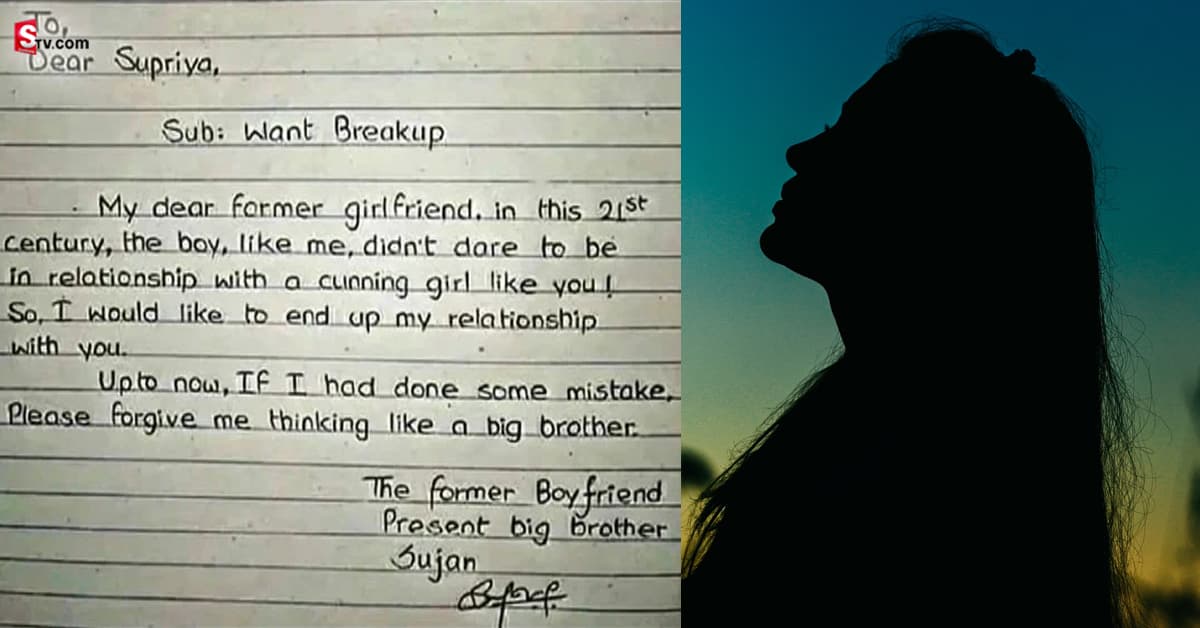 To,
STV.com
Dear Supriya,
Sub: Want Breakup
My dear former girlfriend, in this 21st
century, the boy, like me, didn't dare to be
in relationship with a cunning girl like you!
So, I would like to end up my relationship
with you.
Upto now, If I had done some mistake,
Please forgive me thinking like a big brother.
The former Boyfriend
Present big brother
Sujan